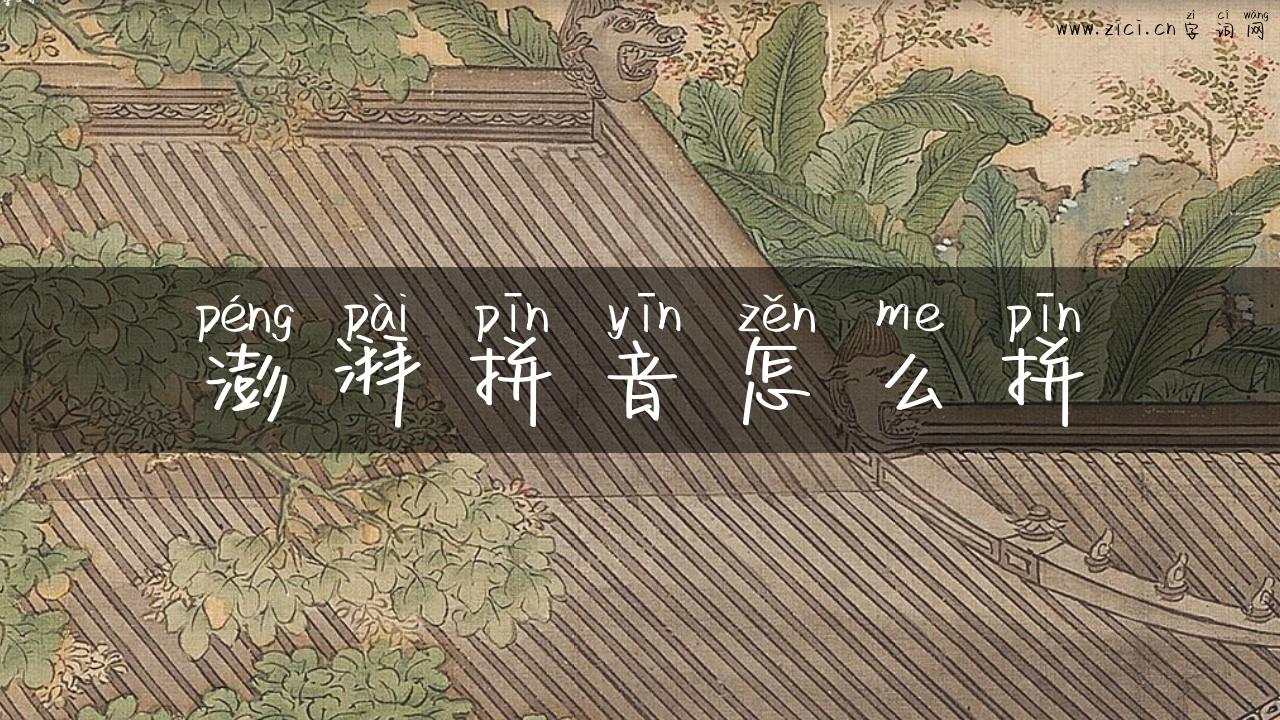 zì cí wǎng
www.zici.cn 字词网
péng pài pīn yīn zěn me pīn
澎湃拼音怎么拼